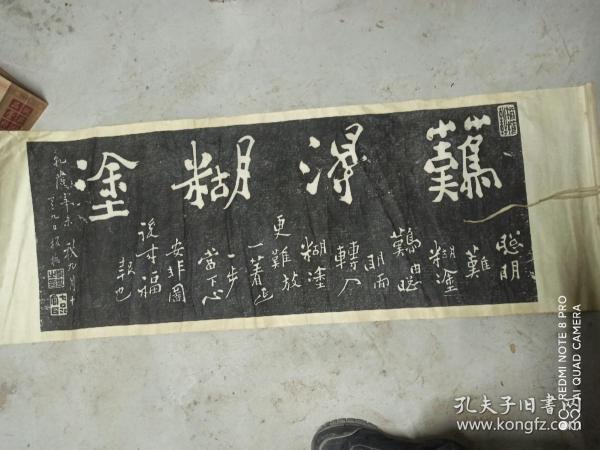 難得糊塗
聰明
難
糊塗
難由聰
明而
轉入
糊塗
更難放
一着退
一步
當下心
安非圖
後來福
報也
乾隆辛未秋九月十
九日板橋
REDMI NOTE 8 PRO
AI QUAD CAMERA
孔夫子旧书网
www.kongfz.com